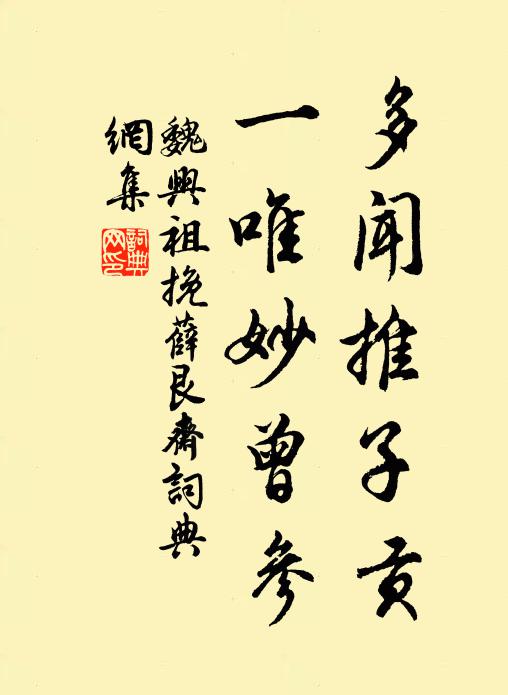 多闻推子贡
一唯妙曾参
魏興祖挽薛艮齋詞典
網集
詞典
网印